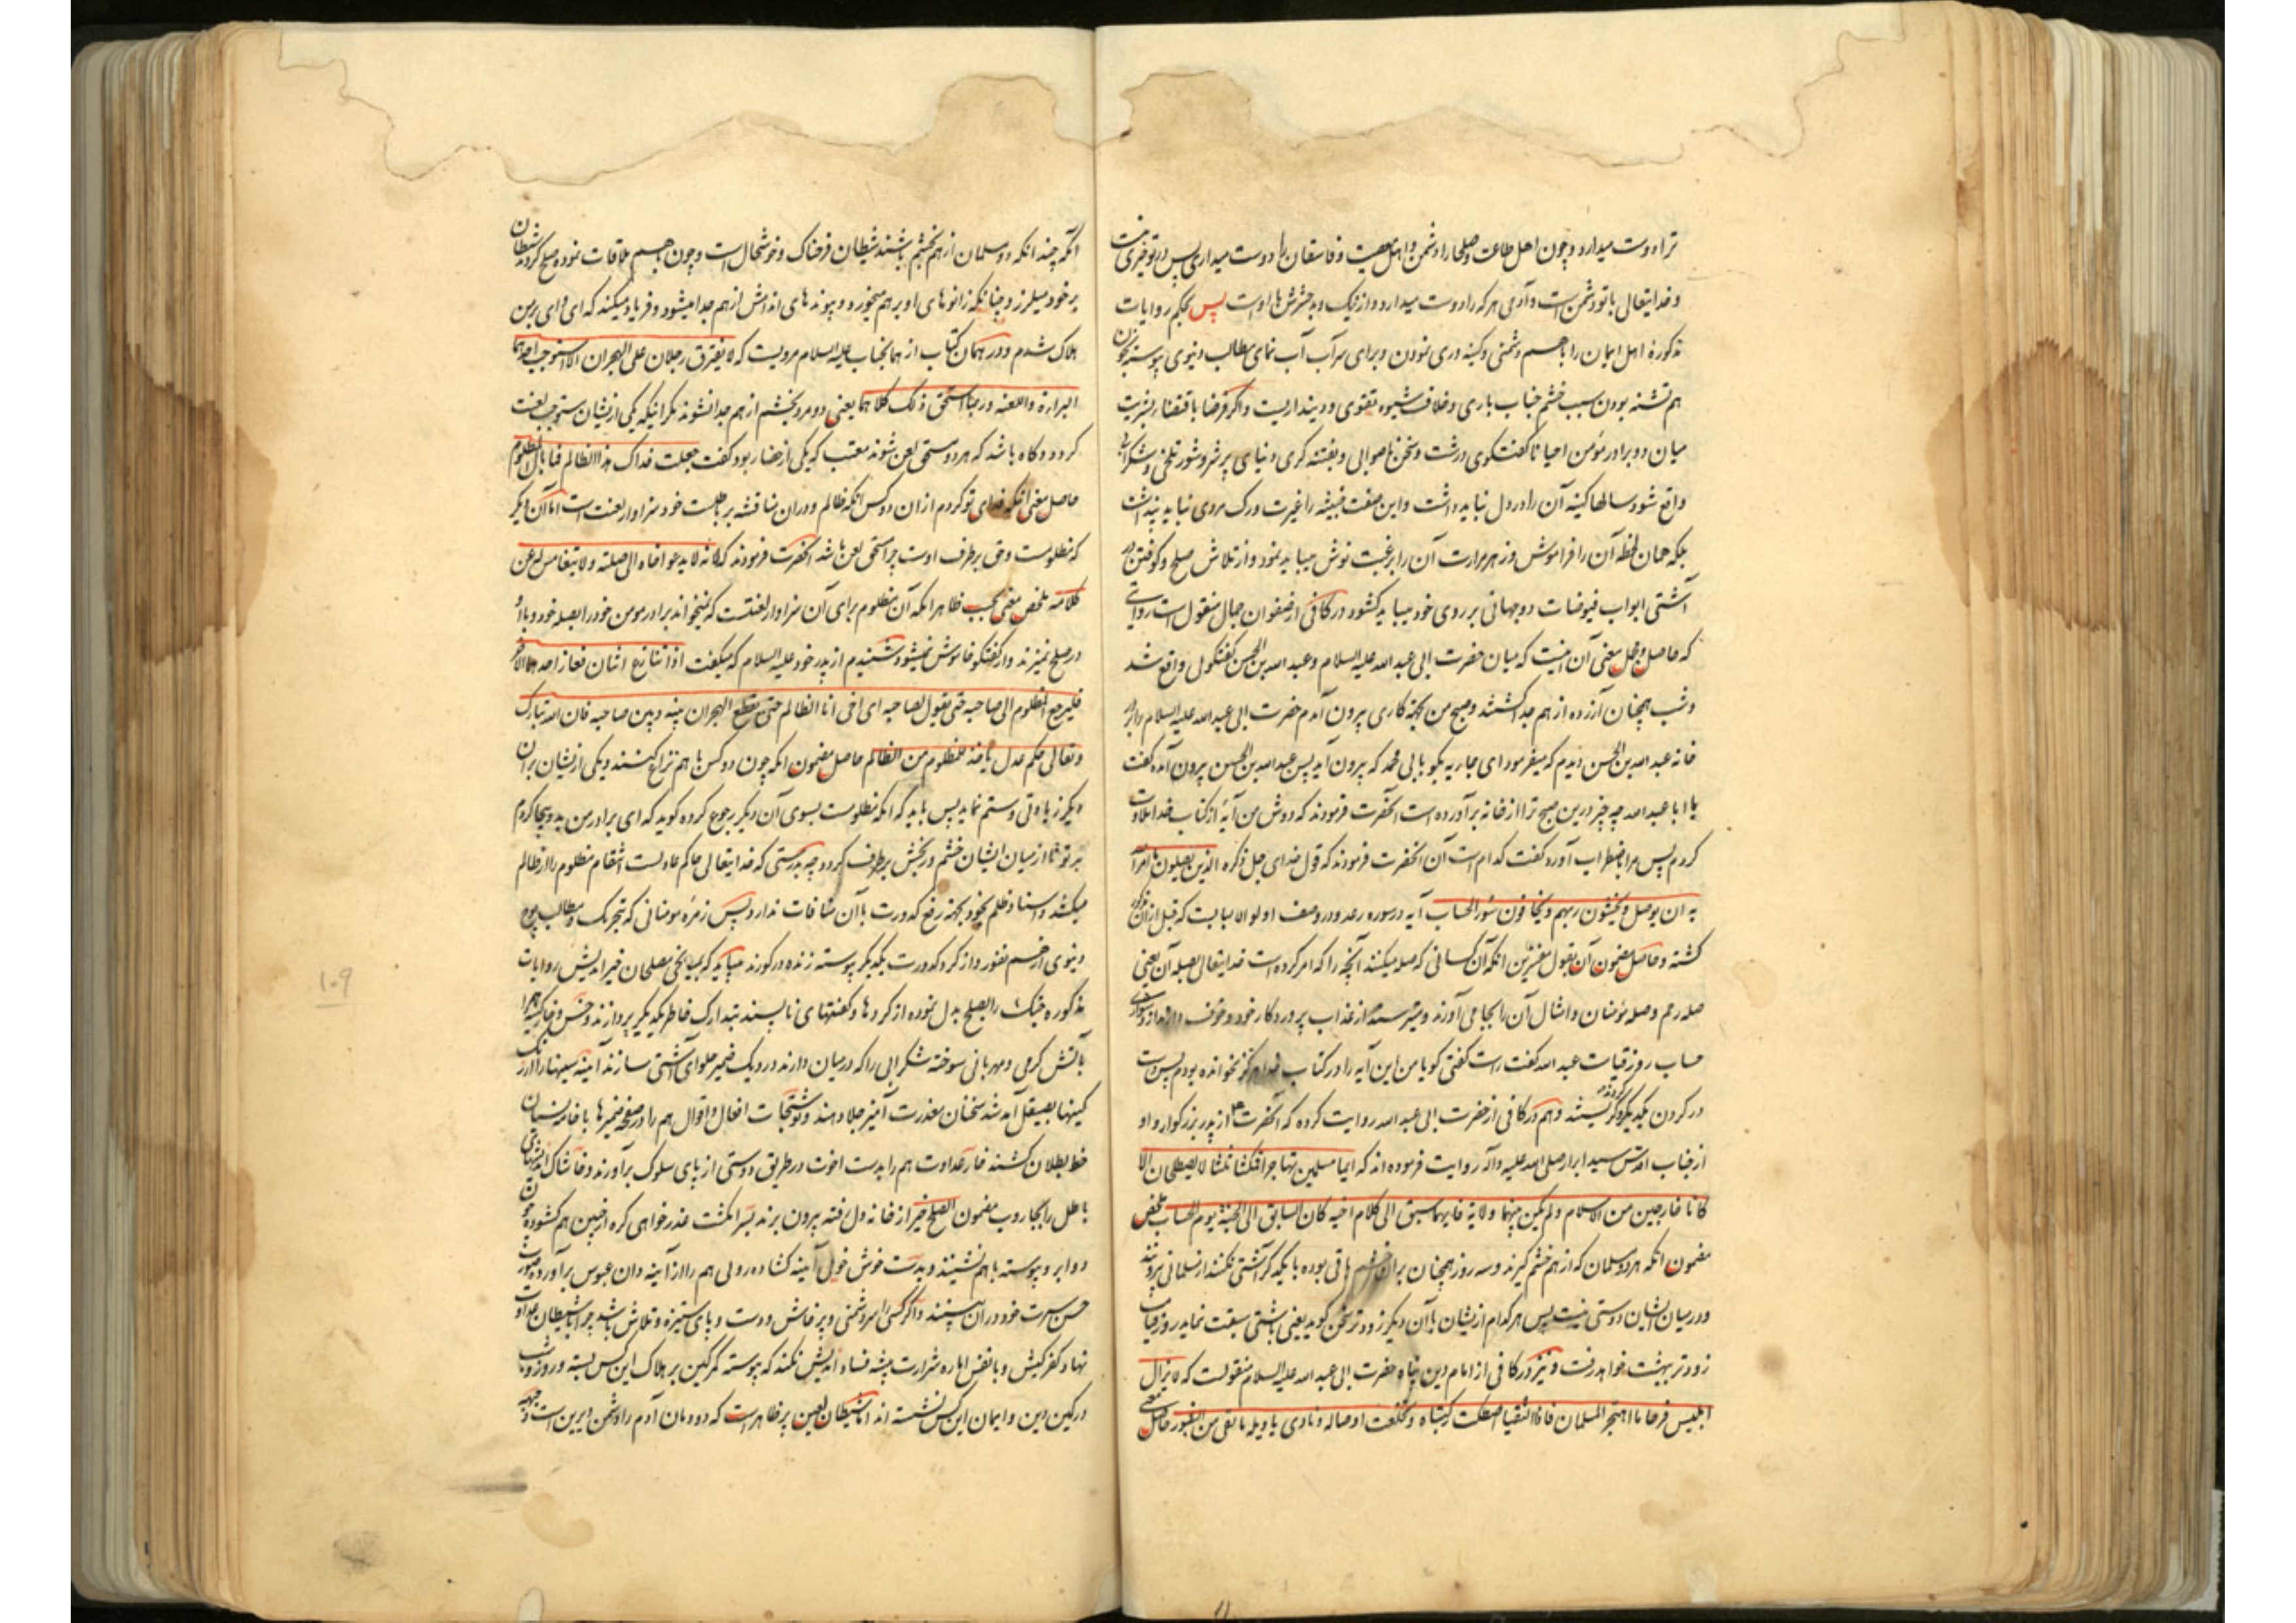 ترا دوست میدارد و چون اهل طاعت و صلحا را دشمن و اهل معصیت و فاسقان را دوست میداری پس در تو خیری نیست
و خدایتعالی با تو دشمن است و آدمی هر که را دوست میدارد و از نیک و بد حشرش با اوست پس بحکم روایات
مذکوره اهل ایمان را با هم دشمنی و کینه وری نمودن و برای سرآب آب نمای مطالب دنیوی پیوسته بخون
هم تشنه بودن سبب خشم جناب باری و خلاف شیوه تقوی و دینداریست و اگر فرضا باقتضاء بشریت
میان دو برادر مؤمن احیانا گفتگوی درشت و سخن ناصوابی و بفتنه کری دنیای پر شر و شور تلخی و شکرابی
واقع شود سالها کینه آن را در دل نباید داشت و این صفت خبیثه را غیرت و رک مردی نباید پنداشت
بلکه همان لحظه آن را فراموش و زهر مرارت آن را برغبت نوش میباید نمود و از تلاش صلح و کوفتن در
آشتی ابواب فیوضات دوجهانی بر روی خود میباید کشود در کافی از صفوان جمال منقول است روایتی
که حاصل و مجمل معنی آن اینست که میان حضرت ابی عبد الله علیه السلام و عبد الله بن الحسن گفتگوئی واقع شد
و شب همچنان آزرده از هم جدا گشتند و صبح من بجهة کاری بیرون آمدم حضرت ابی عبد الله علیه السلام را بر در
خانه عبد الله بن الحسن دیدم که میفرمود ای جاریه بگو بابی محمد که بیرون آید پس عبد الله بن الحسن بیرون آمده گفت
یا ابا عبد الله چه چیز درین صبح ترا از خانه برآورده است آنحضرت فرمودند که دوش من آیۀ از کتاب خدا تلاوت
کردم پس مرا باضطراب آورد گفت کدام است آن آنحضرت فرمودند که قول خدای جل ذکره الذین یصلون ما امر الله
به ان یوصل و یخشون ربهم و یخافون سوء الحساب آیه در سوره رعد و در وصف اولو الالبابست که قبل از آن مذکور
گشته و حاصل مضمون آن بقول مفسرین انکه آن کسانی که صله میکنند آنچه را که امر کرده است خدایتعالی بصله آن یعنی
صله رحم و صله مؤمنان و امثال آن را بجا می آورند و میترسند از عذاب پروردکار خود و خوف دارند از
حساب روز قیامت عبد الله گفت راست گفتی کویا من این آیه را در کتاب خدا هرکز نخوانده بودم پس دست
در کردن یکدیگر کرده گریستند و هم در کافی از حضرت ابی عبد الله روایت کرده که آنحضرت از پدر بزرگوار و او
از جناب اقدس سید ابرار صلی الله علیه و آله روایت فرموده اند که ایما مسلمین تهاجرا فمکثا ثلثا لا یصطلحان الا
کانا خارجین من الاسلام و لم یکن بینهما ولایة فایهما سبق الی کلام اخیه کان السابق الی الجنة یوم الحساب ملخص
مضمون انکه هر دو مسلمان که از هم خشم گیرند و سه روز همچنان بر آن خشم باقی بوده با یکدیگر آشتی نکنند از مسلمانی بیرونند
و در میان ایشان دوستی نیست پس هر کدام ازیشان با آن دیکر زودتر سخن کوید یعنی باشتی سبقت نماید روز قیامت
زودتر ببهشت خواهد رفت و نیز در کافی از امام دین پناه حضرت ابی عبد الله علیه السلام منقولست که لا یزال
ابلیس فرحا ما اهتجر المسلمان فاذا التقیا اصطکت رکبتاه و تخلعت اوصاله و نادی یا ویله ما لقی من الثبور حاصل معنی
آنکه چندانکه دو مسلمان از هم بخشم باشند شیطان فرحناک و خوشحال است و چون با هم ملاقات نموده صلح کردند شیطان
بر خود میلرزد چنانکه زانوهای او بر هم میخورد و پیوندهای اندامش از هم جدا میشود و فریاد میکند که ای وای بر من
هلاک شدم و در همان کتاب از همانجناب علیه السلام مرویست که لا یفترق رجلان علی الهجران الا استوجب احدهما
البراءة و اللعنه و ربما استحق ذلک کلاهما یعنی دو مرد بخشم از هم جدا نشوند مکر اینکه یکی ازیشان مستوجب لعنت
کردد و کاه باشد که هر دو مستحق لعن شوند معتب که یکی از حضار بود گفت جعلت فداک هذا الظالم فما بال المظلوم
حاصل معنی انکه فدای تو کردم از ان دو کس انکه ظالم و در ان مناقشه بر باطلست خود سزاوار لعنت است اما آن دیکر
که مظلومست و حق بر طرف اوست چرا مستحق لعن باشد آنحضرت فرمودند که لانه لا یدعو اخاه الی صلته و لا یتغامس له عن
کلامه ملخص معنی بحسب ظاهر انکه آن مظلوم برای آن سزاوار لعنتست که نمیخواند برادر مومن خود را بصله خود و با او
در صلح نمیزند و از گفتگو خاموش نمیشود شنیدم از پدر خود علیه السلام که میگفت اذا تنازع اثنان فعاز احدهما الاخر
فلیرجع المظلوم الی صاحبه حتی یقول لصاحبه ای اخی انا الظالم حتی یقطع الهجران بینه و بین صاحبه فان الله تبارک
و تعالی حکم عدل یأخذ للمظلوم من الظالم حاصل مضمون انکه چون دو کس با هم نزاع کنند و یکی ازیشان بر ان
دیکر زیادتی و ستم نماید پس باید که انکه مظلومست بسوی آن دیکر رجوع کرده کوید که ای برادر من بد و بیجا کردم
بر تو تا از میان ایشان خشم و رنجش برطرف کردد چه بدرستی که خدایتعالی حاکم عادلست انتقام مظلوم را از ظالم
میکشد و اسناد ظلم بخود بجهة رفع کدورت با آن منافات ندارد پس زمرۀ مومنانی که بتحریک مطالب
دنیوی از هم نفور و از کرد کدورت یکدیگر پیوسته زنده در کورند میباید که بمیانجی مصلحان خیر اندیش روایات
مذکوره جنک را بصلح بدل نموده از کردها و کفتهای ناپسند بتدارک خاطر یکدیگر پردازند و خس و خار کینه را
باتش کرمی و مهربانی سوخته شکرابی را که در میان دارند در دیک ضمیر حلوای آشتی سازند آینه سینها را از زنک
کینها بصیقل آمد شد سخنان معذرت آمیز جلا دهند و نوشتجات افعال و اقوال هم را در صفحه ضمیرها با خامه نسیان
خط بطلان کشند خار عداوت هم را بدست اخوت در طریق دوستی از پای سلوک برآورند و خاشاک اندیشهای
باطل را بجاروب مضمون الصلح خیر از خانه دل رفته بیرون برند بسر انکشت عذرخواهی کره از جبین هم کشوده چون
دو ابرو پیوسته با هم نشینند و بدست خوش خوئی آینه کشاده روئی هم را از آینه دان عبوس برآورده صورت
حسن سیرت خود در ان بینند و اگر کسی را سر دشمنی و پرخاش و دست و پای ستیزه و تلاش باشد چرا با شیطان عداوت
نهاد کفر کیش و با نفس اماره شرارت پیشه فساد اندیش نکند که پیوسته کمر کین بر هلاک این کس بسته و روز و شب
در کمین دین و ایمان این کس نشسته اند اما شیطان لعین پر ظاهرست که دودمان آدم را دشمن دیرین است و بجهة
۱۰۹